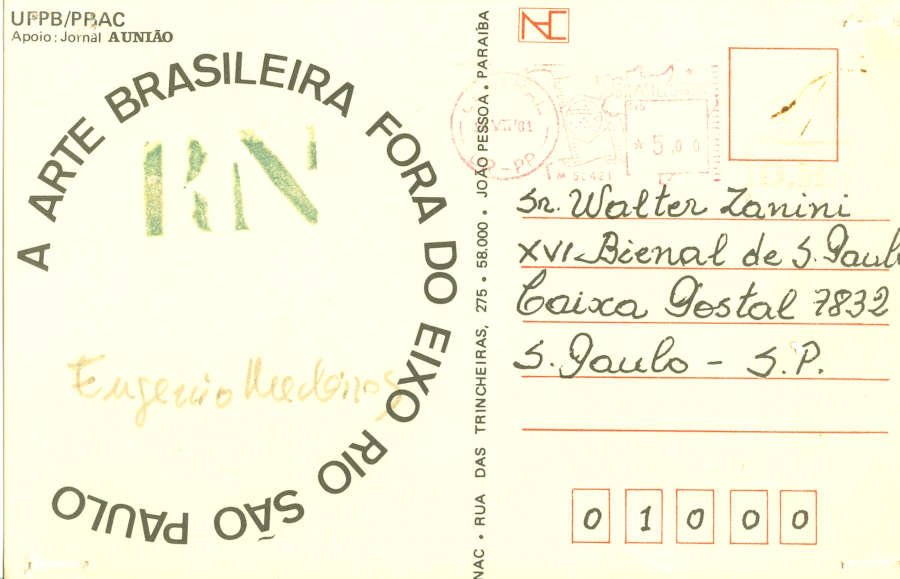 UFPB/PRAC
Apoio: Jornal A UNIÃO
A ARTE BRASILEIRA FORA DO EIXO RIO SÃO PAULO
RN
Eugenio Medeiros
NAC • RUA DAS TRINCHEIRAS, 275 • 58.000 • JOÃO PESSOA • PARAÍBA
5,00
Sr. Walter Zanini
XVI-Bienal de S. Paulo
Caixa Postal 7832
S. Paulo - S.P.
0 1 0 0 0